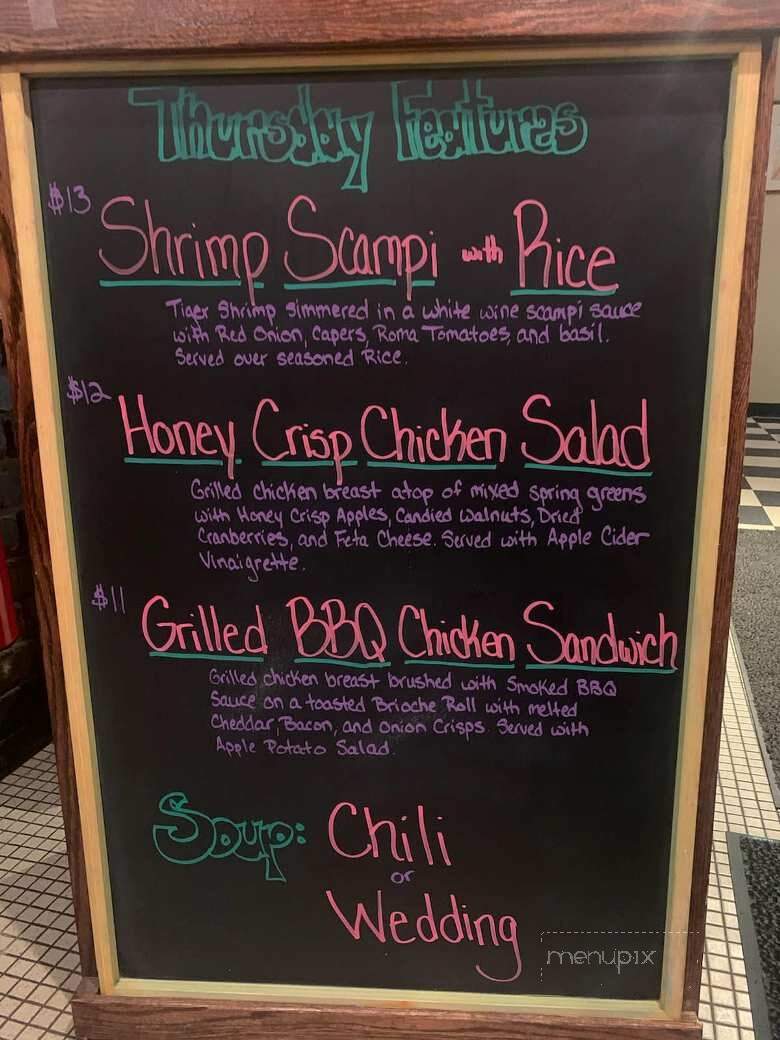 Thursday Features
$13
Shrimp Scampi with Rice
Tiger Shrimp simmered in a white wine scampi sauce
with Red Onion, capers, Roma Tomatoes, and basil.
Served over seasoned Rice.
$12
Honey Crisp Chicken Salad
Grilled chicken breast atop of mixed spring greens
with Honey Crisp Apples, Candied Walnuts, Dried
Cranberries, and Feta Cheese. Served with Apple Cider
Vinaigrette.
$11
Grilled BBQ Chicken Sandwich
Grilled chicken breast brushed with Smoked BBQ
Sauce on a toasted Brioche Roll with melted
Cheddar, Bacon, and Onion Crisps. Served with
Apple Potato Salad.
Soup: Chili
or
Wedding
menupix